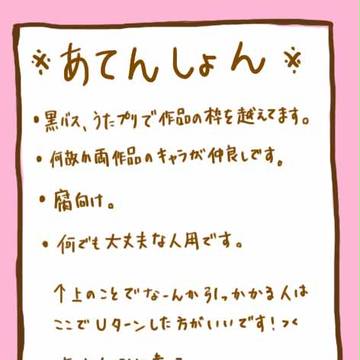 ※あてんしょん※
・黒バス、うたプリで作品の枠を越えてます。
・何故か両作品のキャラが仲良しです。
・腐向け。
・何でも大丈夫な人用です。
↑上のことでなーんか引っかかる人は
ここでUターンした方がいいです！><